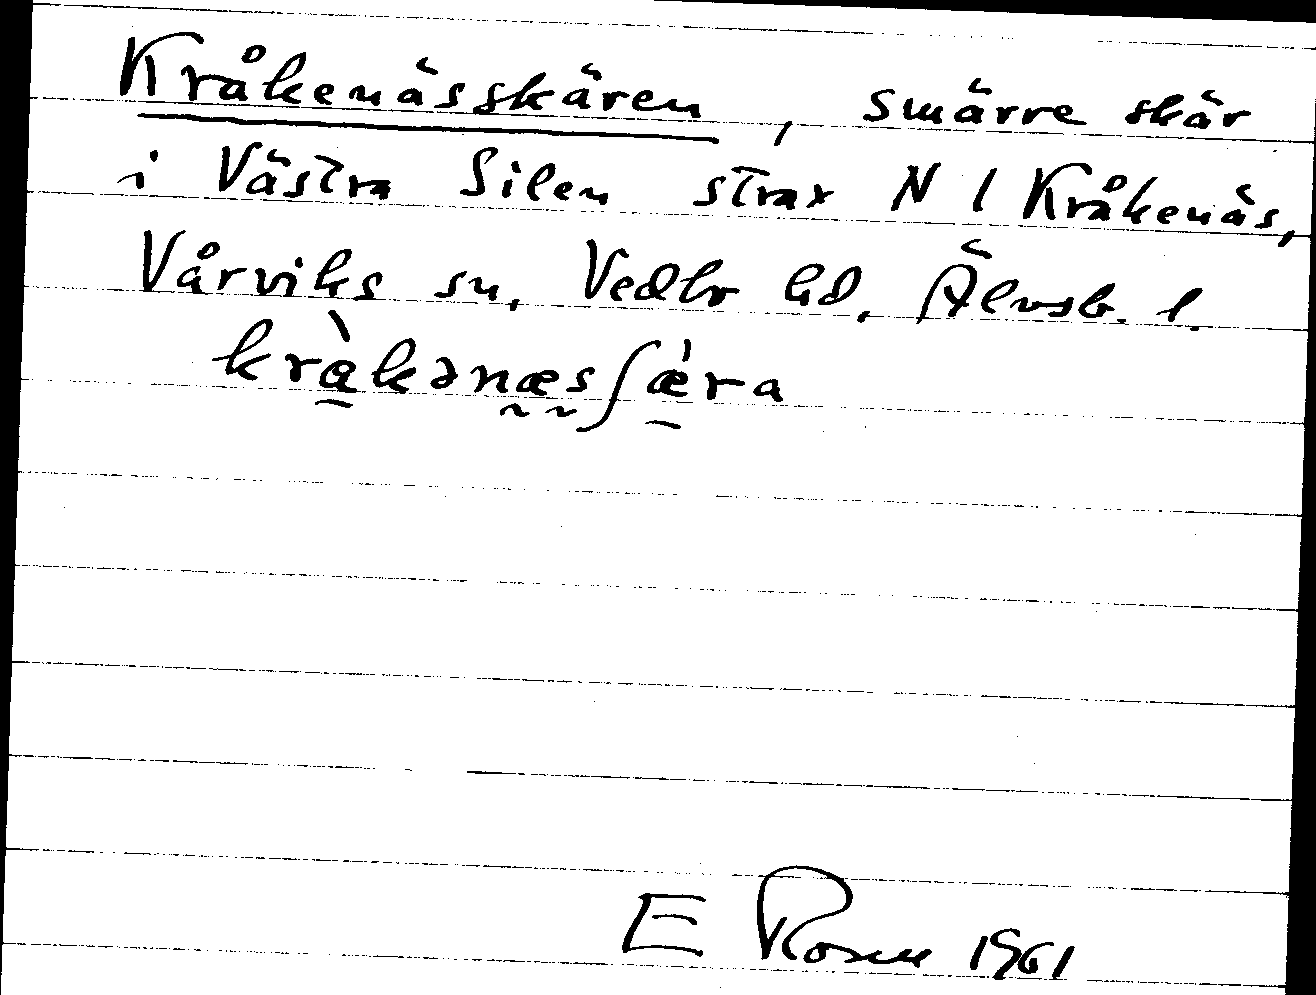 Kråkenässkären, smärre skär
i Västra Silen strax N l Kråkenäs,
Vårviks sn, Vedbo hd, Älvsb. l.
kràkənæsʃæ̀ra
E Rosen 1961